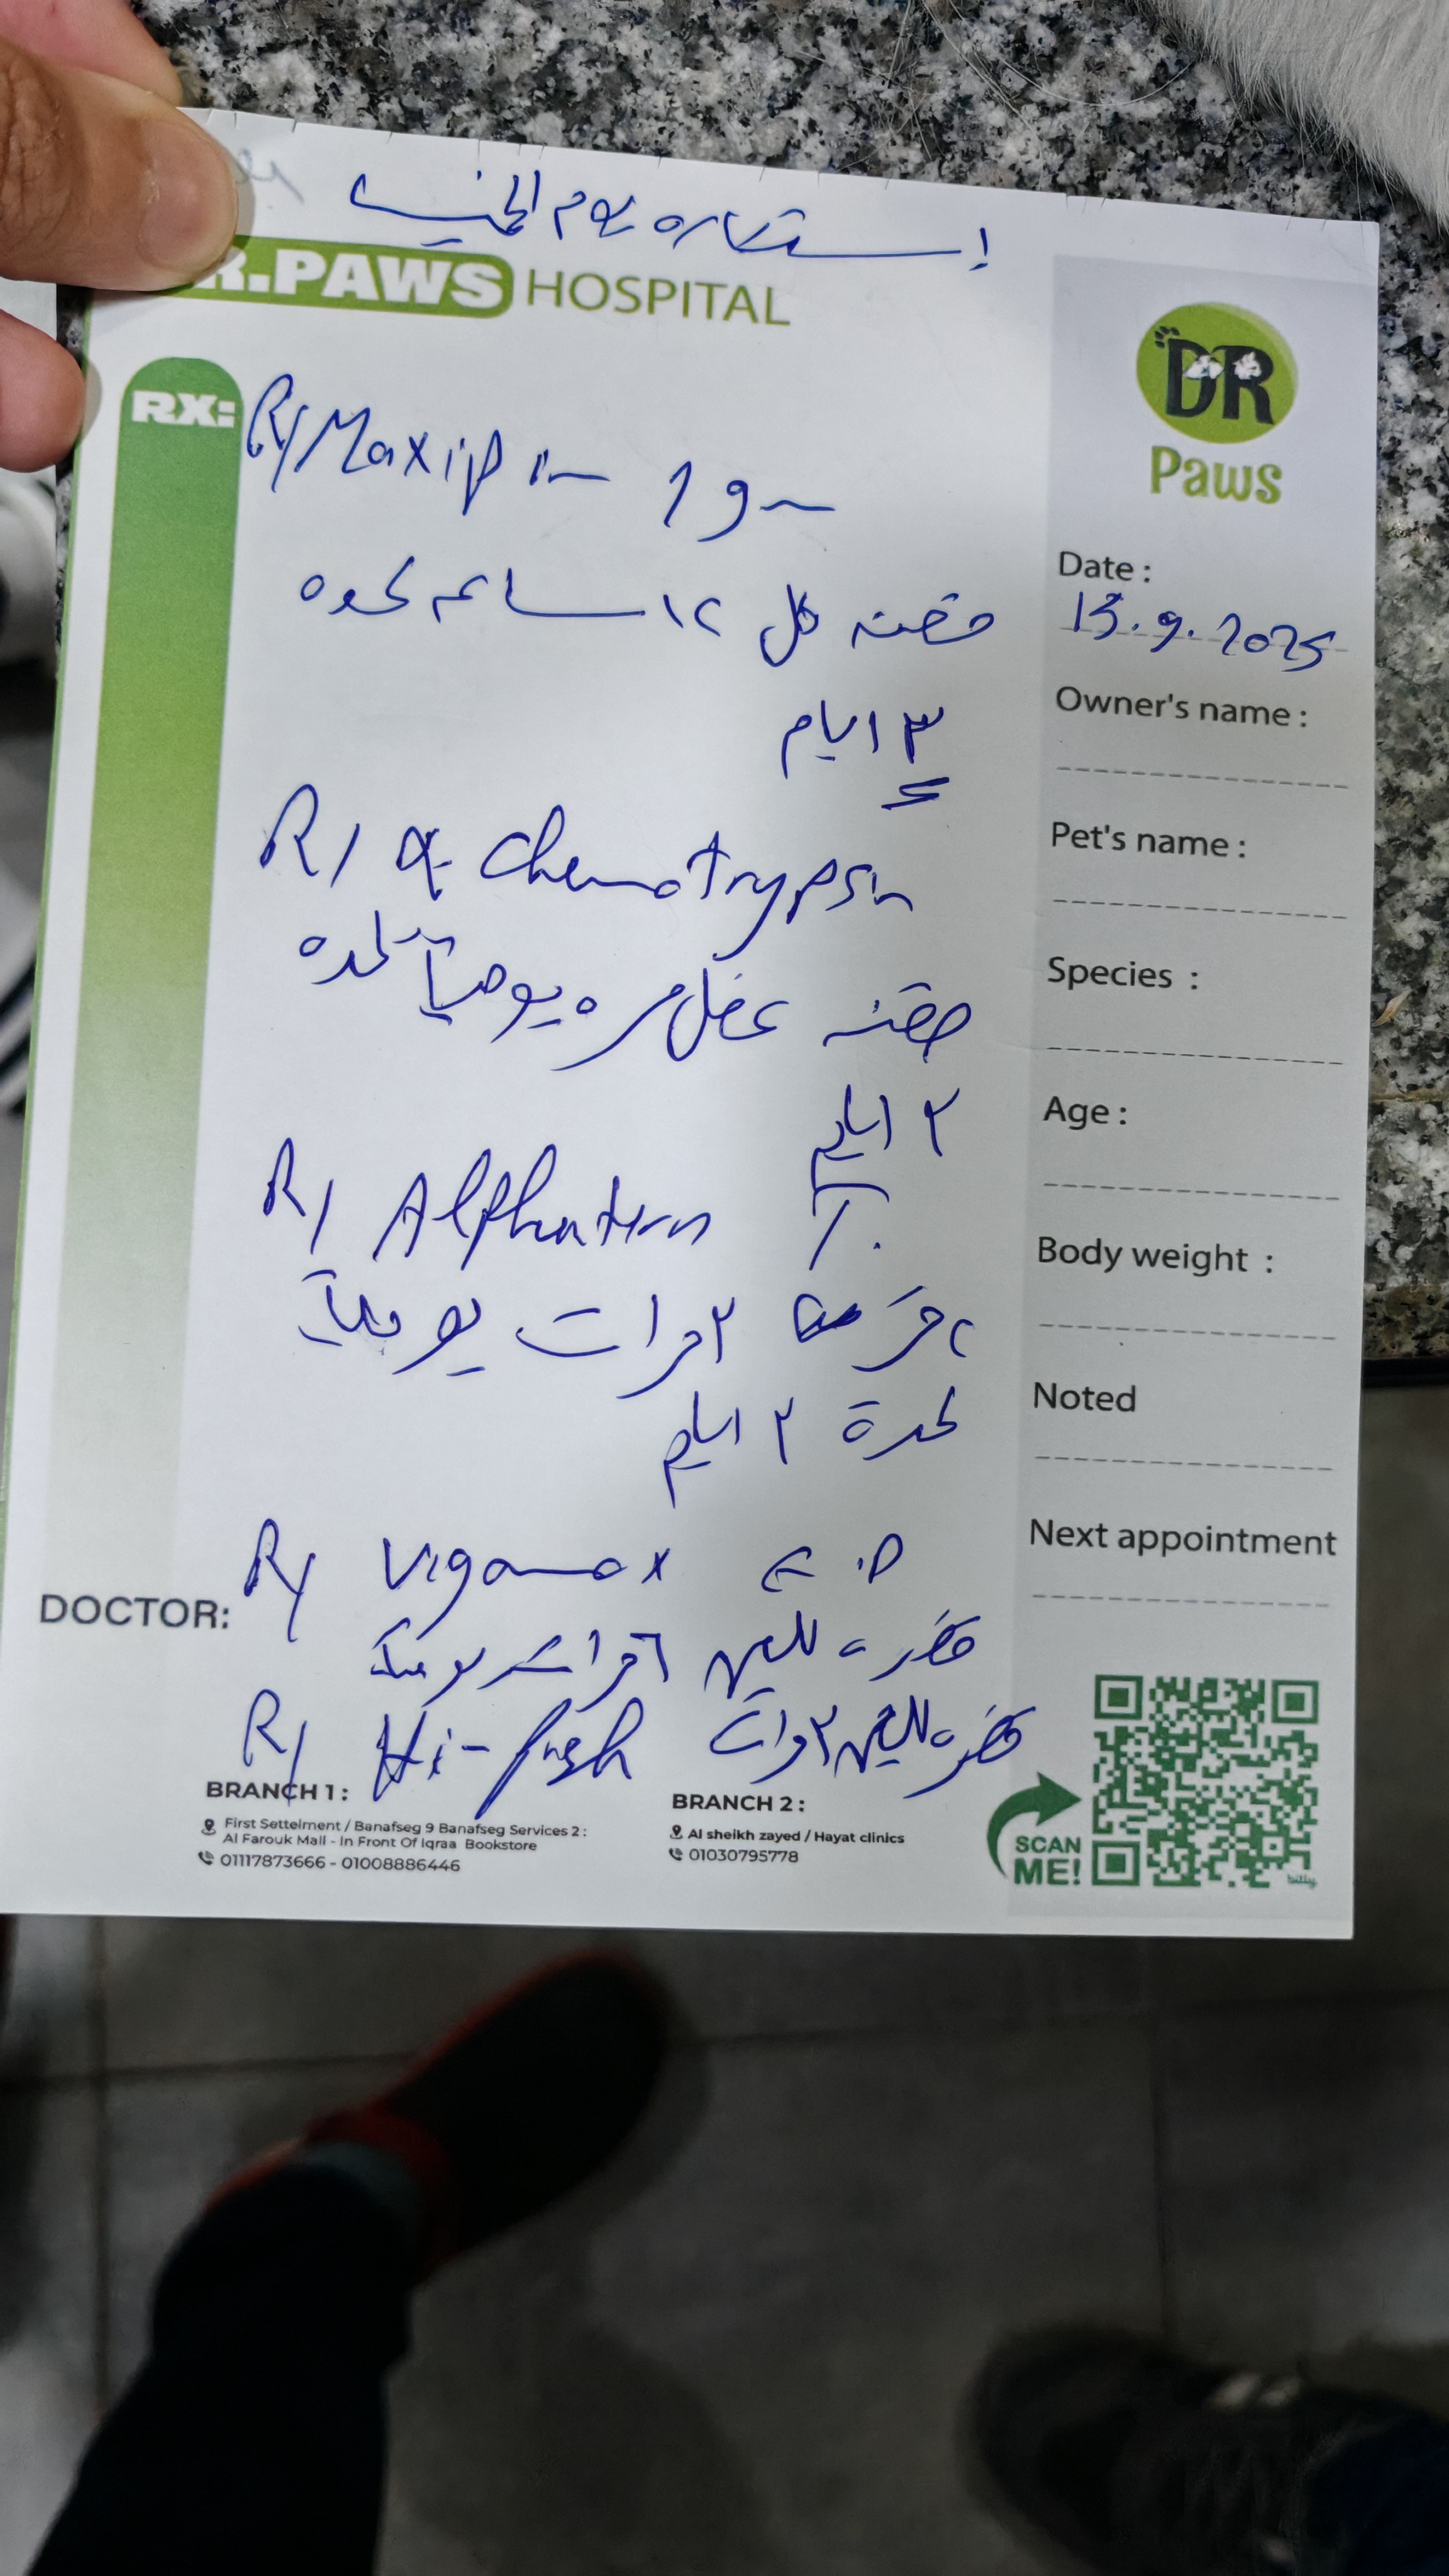 إستشاره يوم الخميس
R.PAWS HOSPITAL
DR
Paws
RX:
R/ Maxipim 1 gm
حقنه كل ١٢ ساعه لمده
٣ ايام
R/ α-Chemotrypsin
حقنه عضل مره يومياً لمده
٣ ايام
R/ Alphatern
٣ مرات يومياً
لمدة ٣ ايام
R/ Vigamox E.D
قطره للعين ٦ مرات يومياً
R/ Hi-fresh قطره للعين ٣ مرات
Date :
13.9.2025
Owner's name :
Pet's name :
Species :
Age :
Body weight :
Noted
Next appointment
DOCTOR:
BRANCH 1 :
First Settelment / Banafseg 9 Banafseg Services 2 :
Al Farouk Mall - In Front Of Iqraa Bookstore
01117873666 - 01008886446
BRANCH 2 :
Al sheikh zayed / Hayat clinics
01030795778
SCAN
ME!
bitly